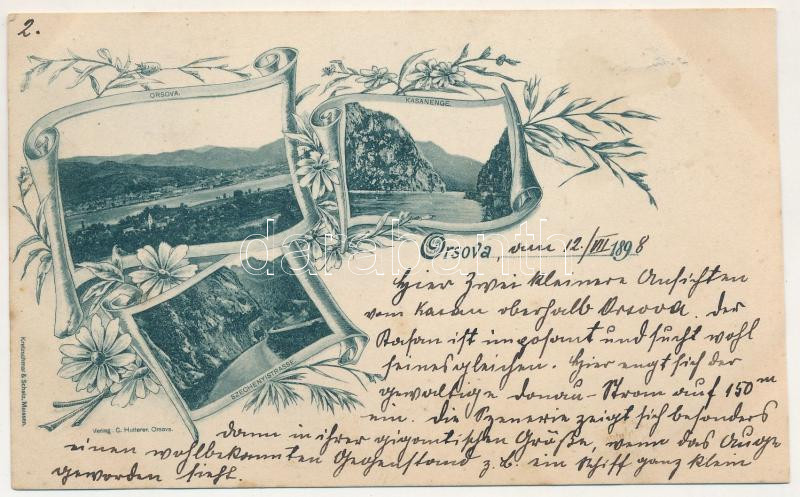 2.
ORSOVA.
KASANENGE.
SZECHENYISTRASSE.
Orsova, am 12./VII 1898
Hier zwei kleinere Ansichten
vom Kasan oberhalb Orsova. Der
Kasan ist imposant und sucht wohl
seinesgleichen. Hier engt sich der
gewaltige Donau-Strom auf 150 m
ein. Die Szenerie zeigt sich besonders
dann in ihrer gigantischen Größe, wenn das Auge
einen wohlbekannten Gegenstand z. B. ein Schiff ganz klein
geworden sieht.
Kretzschmar & Schatz, Meissen.
Verlag: C. Hutterer, Orsova.
darabanth